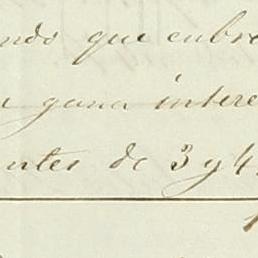 ndo que cubre
gana intere
ntes de 3 y 4
1